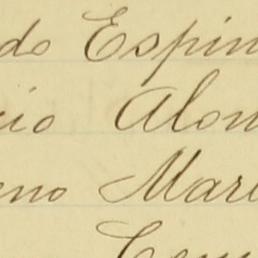 do Espin
cio Alon
eno Mari